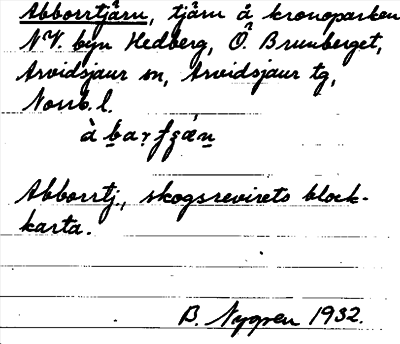 Abborrtjärn, tjärn å kronoparken
NV. byn Hedberg, Ö. Brunberget,
Arvidsjaur sn, Arvidsjaur tg,
Norrb. l.
Abborrtj., skogsrevirets block-
karta.
B. Nygren 1932.